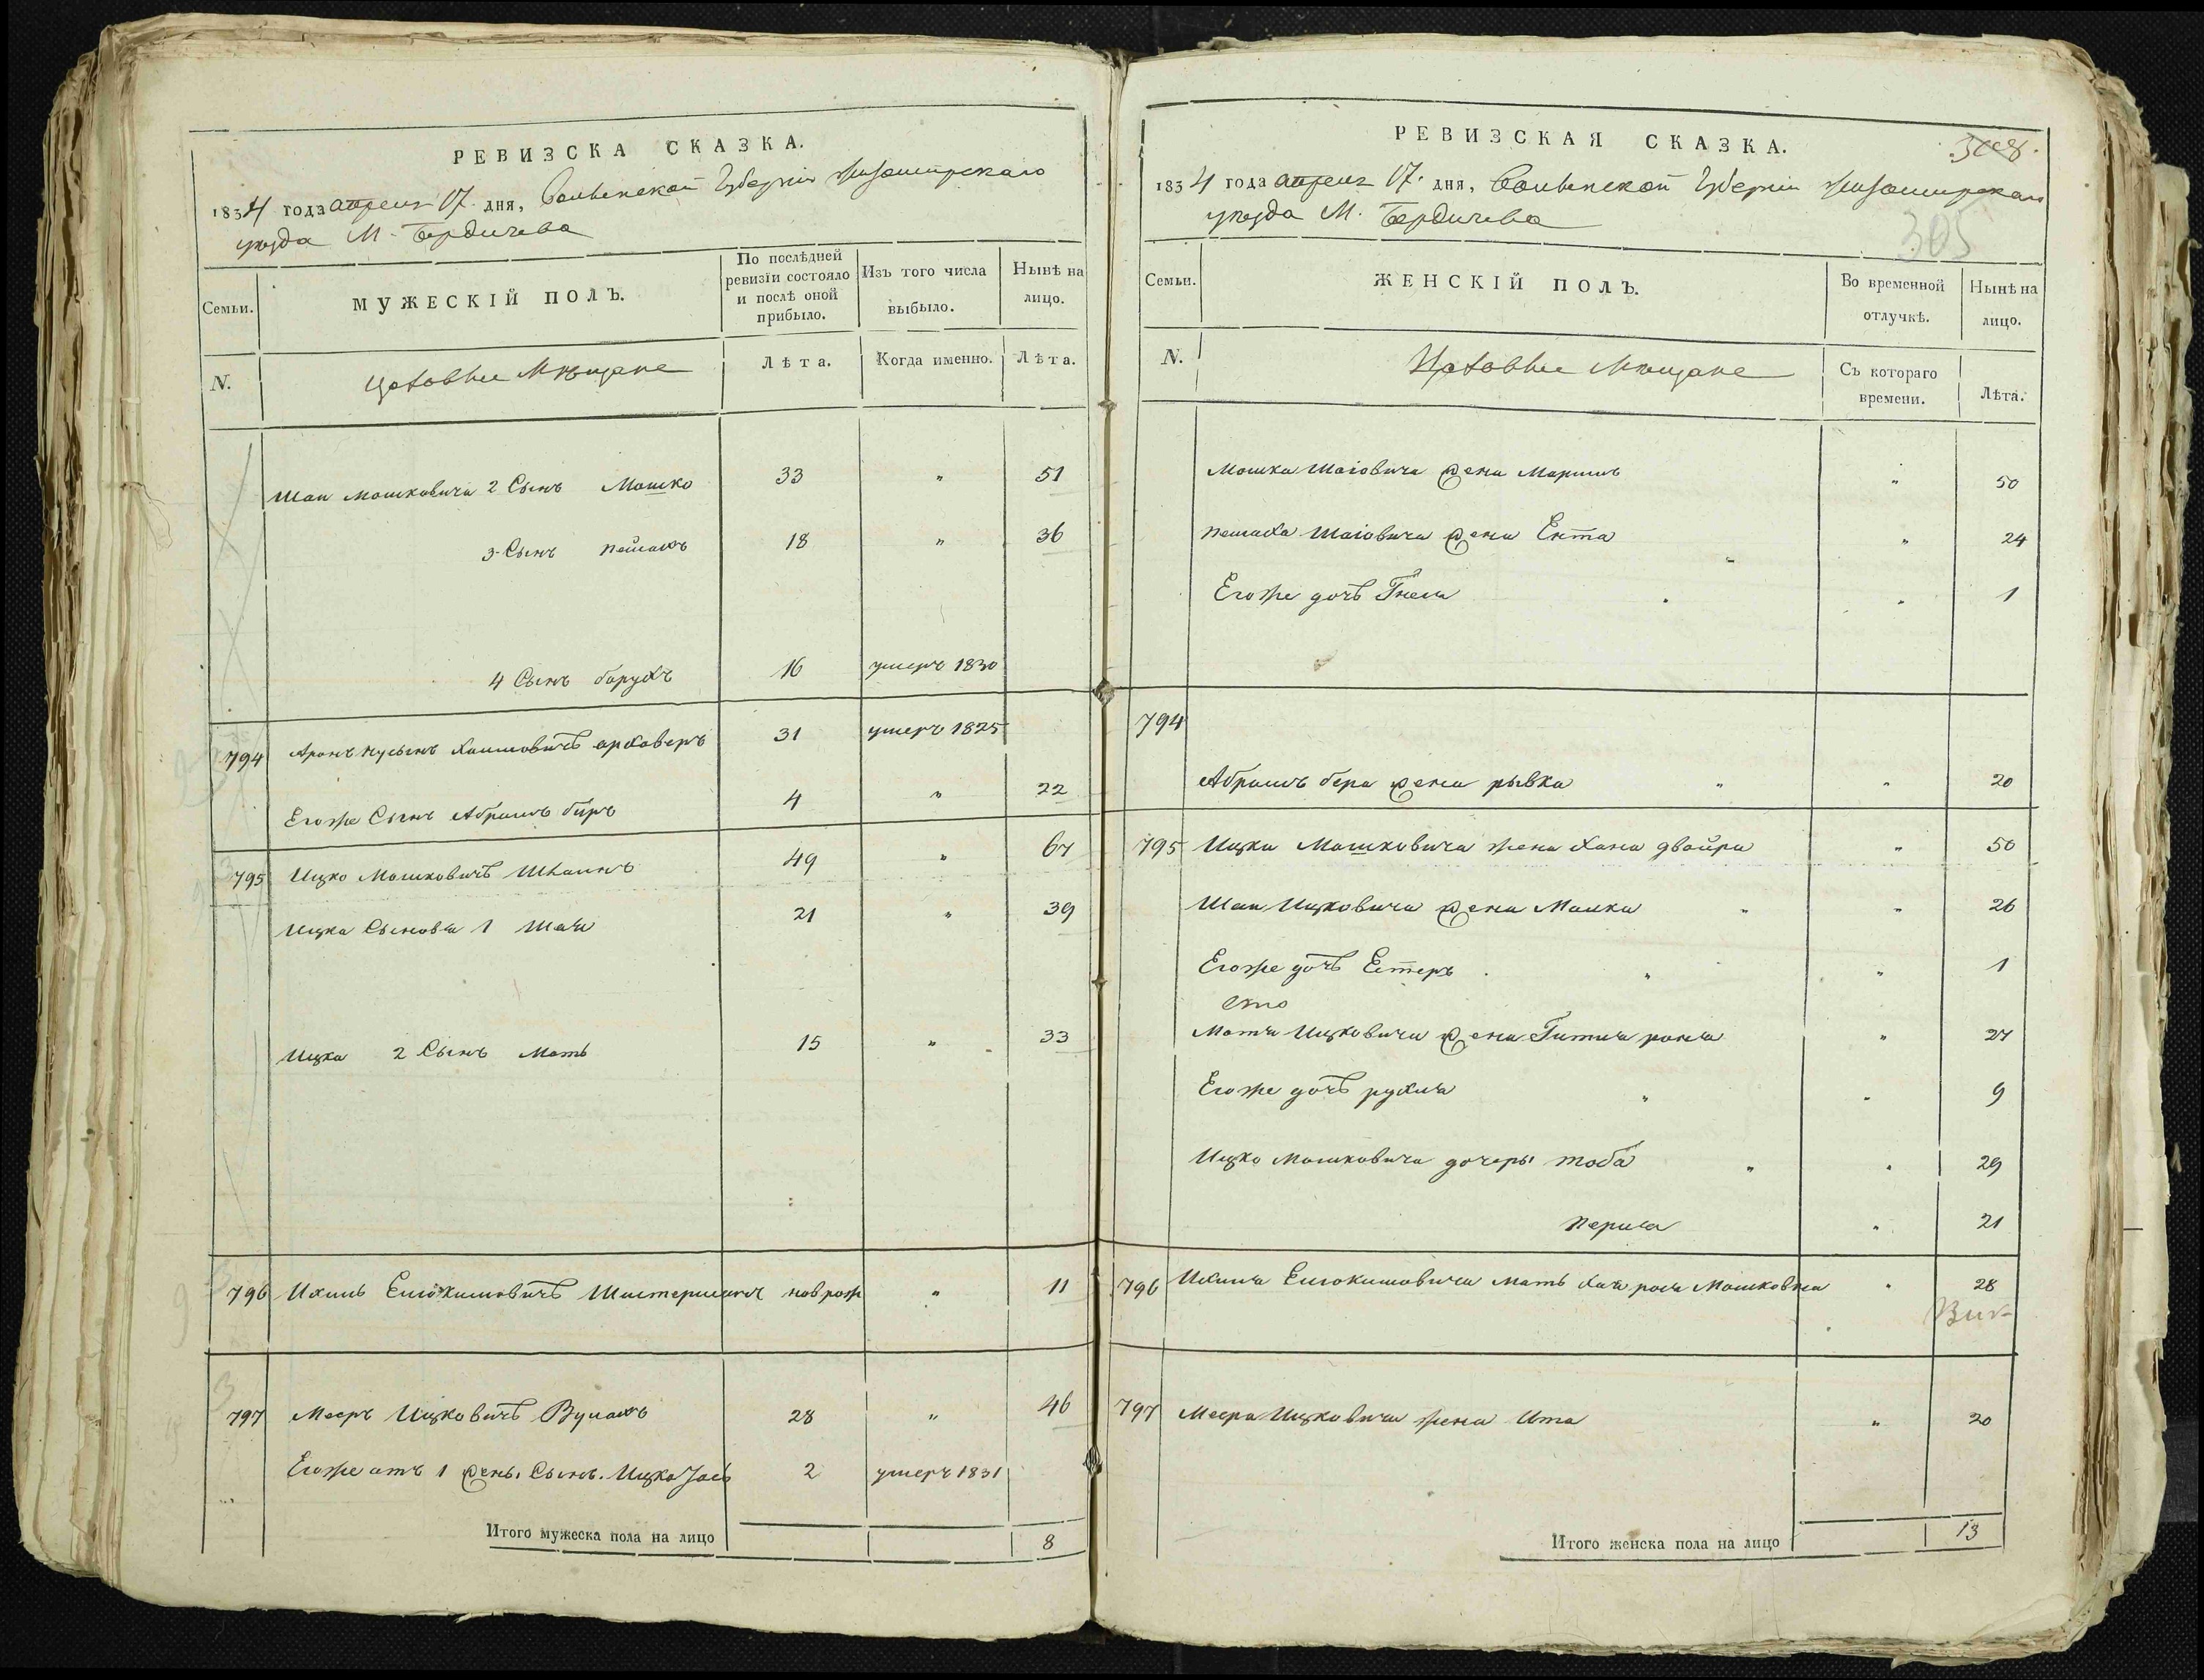 РЕВИЗСКА СКАЗКА.
1834 года апреля 17 дня, Волынской Губерніи Житомирскаго
уезда М. Бердичева
Семьи.
МУЖЕСКІЙ ПОЛЪ.
По послѣдней
ревизіи состояло
и послѣ оной
прибыло.
Изъ того числа
выбыло.
Нынѣ на
лицо.
N.
Мѣщане
Лѣта.
Когда именно.
Лѣта.
Шаи Мошковича 2 Сынъ Мошко 33 " 51
3 Сынъ Пейсахъ 18 " 36
4 Сынъ Борухъ 16 умеръ 1830
794 Аронъ Нусынъ Хаимовичъ 31 умеръ 1825
Егоже Сынъ Абрамъ Беръ 4 " 22
795 Ицко Мошковичъ 49 " 67
Ицка Сыновья 1 Шая 21 " 39
Ицка 2 Сынъ Мать 15 " 33
796 новрож " 11
797 Мееръ Ицковичъ 28 " 46
Егоже отъ 1 жены Сынъ Ицко Іось 2 умеръ 1831
Итого мужеска пола на лицо 8
РЕВИЗСКАЯ СКАЗКА.
305
1834 года апреля 17 дня, Волынской Губерніи Житомирскаго
уезда М. Бердичева
Семьи.
ЖЕНСКІЙ ПОЛЪ.
Во временной
отлучкѣ.
Нынѣ на
лицо.
N.
Мѣщане
Съ котораго
времени.
Лѣта.
Мошка Шаіовича жена " 50
Пейсаха Шаіовича жена Ента " 24
Егоже дочь " 1
794
Абрамъ Бера жена Рывка " 20
795 Ицка Мошковича жена Хана Двойра " 50
Шаи Ицковича жена Малка " 26
Егоже дочь Естеръ " 1
Мотя Ицковича жена " 27
Егоже дочь Рухля " 9
Ицко Мошковича дочеры Тоба " 29
Перля " 21
796 мать Хая Мошковна " 28
797 Меера Ицковича жена Ита " 20
Итого женска пола на лицо 13